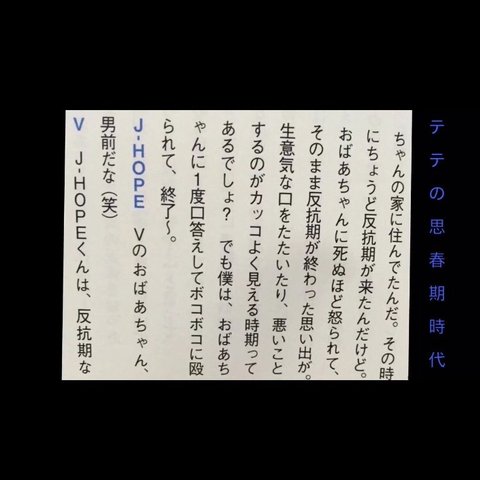 テテの思春期時代
ちゃんの家に住んでたんだ。その時
にちょうど反抗期が来たんだけど。
おばあちゃんに死ぬほど怒られて、
そのまま反抗期が終わった思い出が。
生意気な口をたたいたり、悪いこと
するのがカッコよく見える時期って
あるでしょ？　でも僕は、おばあち
ゃんに1度口答えしてボコボコに殴
られて、終了〜。
J-HOPE　Vのおばあちゃん、
男前だな（笑）
V　J-HOPEくんは、反抗期な